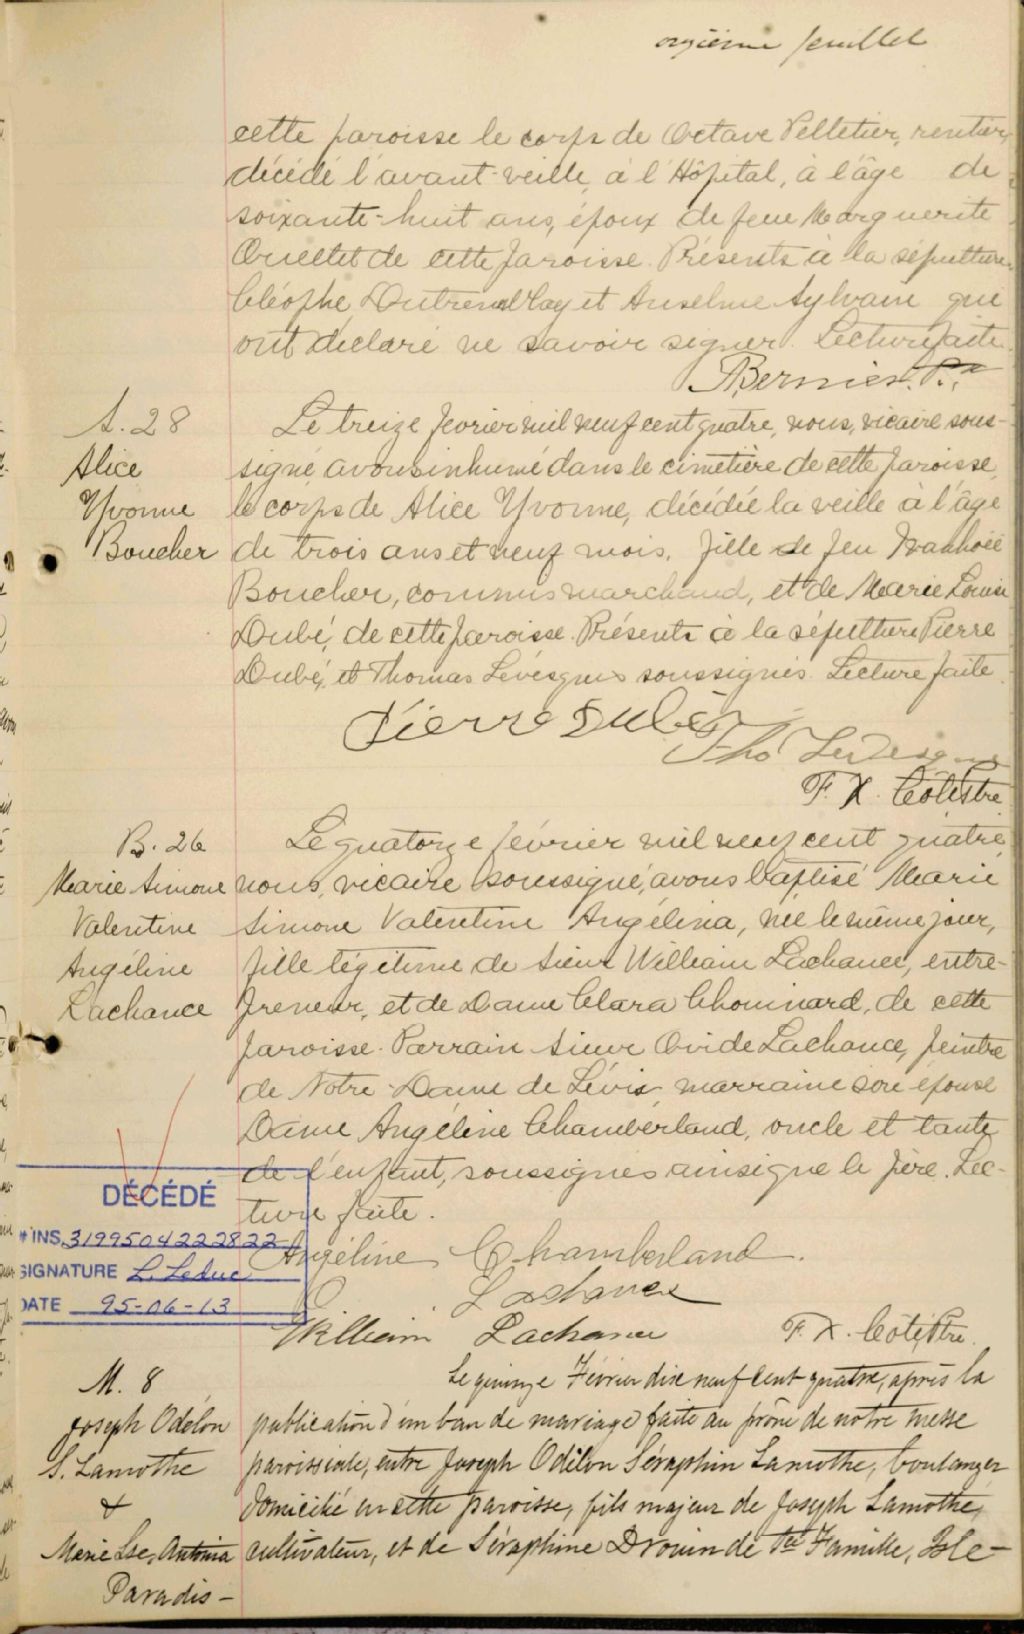 onzième feuillet
cette paroisse le corps de Octave Pelletier, rentier,
décédé l'avant-veille, à l'Hôpital, à l'âge de
soixante-huit ans, époux de feue Marguerite
Ouellet de cette paroisse. Présents à la sépulture
Cléophe et Anselme Sylvain qui
ont déclaré ne savoir signer. Lecture faite.
Bernier. P.
S. 28
Alice
Yvonne
Boucher
Le treize fevrier mil neuf cent quatre, nous, vicaire sous-
signé, avons inhumé dans le cimetière de cette paroisse,
le corps de Alice Yvonne, décédée la veille à l'âge
de trois ans et neuf mois, fille de feu Ivanhoë
Boucher, commis marchand, et de Marie Louise
Dubé, de cette paroisse. Présents à la sépulture Pierre
Dubé, et Thomas Lévesque soussignés. Lecture faite.
Pierre Dubé
Tho Levesque
F. X. Côté Ptre
B. 26
Marie Simone
Valentine
Angéline
Lachance
Le quatorze février mil neuf cent quatre
nous, vicaire soussigné, avons baptisé Marie
Simone Valentine Angélina, née le même jour,
fille légitime de Sieur William Lachance, entre-
preneur, et de Dame Clara Chouinard, de cette
paroisse. Parrain Sieur Ovide Lachance, peintre
de Notre-Dame de Lévis, marraine son épouse
Dame Angéline Chamberland, oncle et tante
de l'enfant, soussignés ainsi que le père. Lec-
ture faite.
Angéline Chamberland.
O. Lachance
William Lachance F. X. Côté, Ptre.
DÉCÉDÉ
# INS. 3199504222822
SIGNATURE L. Leduc
DATE 95-06-13
M. 8
Joseph Odélon
S. Lamothe
&
Marie Lse, Antonia
Paradis -
Le quinze Février dix neuf cent quatre, après la
publication d'un ban de mariage faite au prône de notre messe
paroissiale, entre Joseph Odilon Séraphin Lamothe, boulanger
domicilié en cette paroisse, fils majeur de Joseph Lamothe,
cultivateur, et de Séraphine Drouin de Ste Famille, Isle-